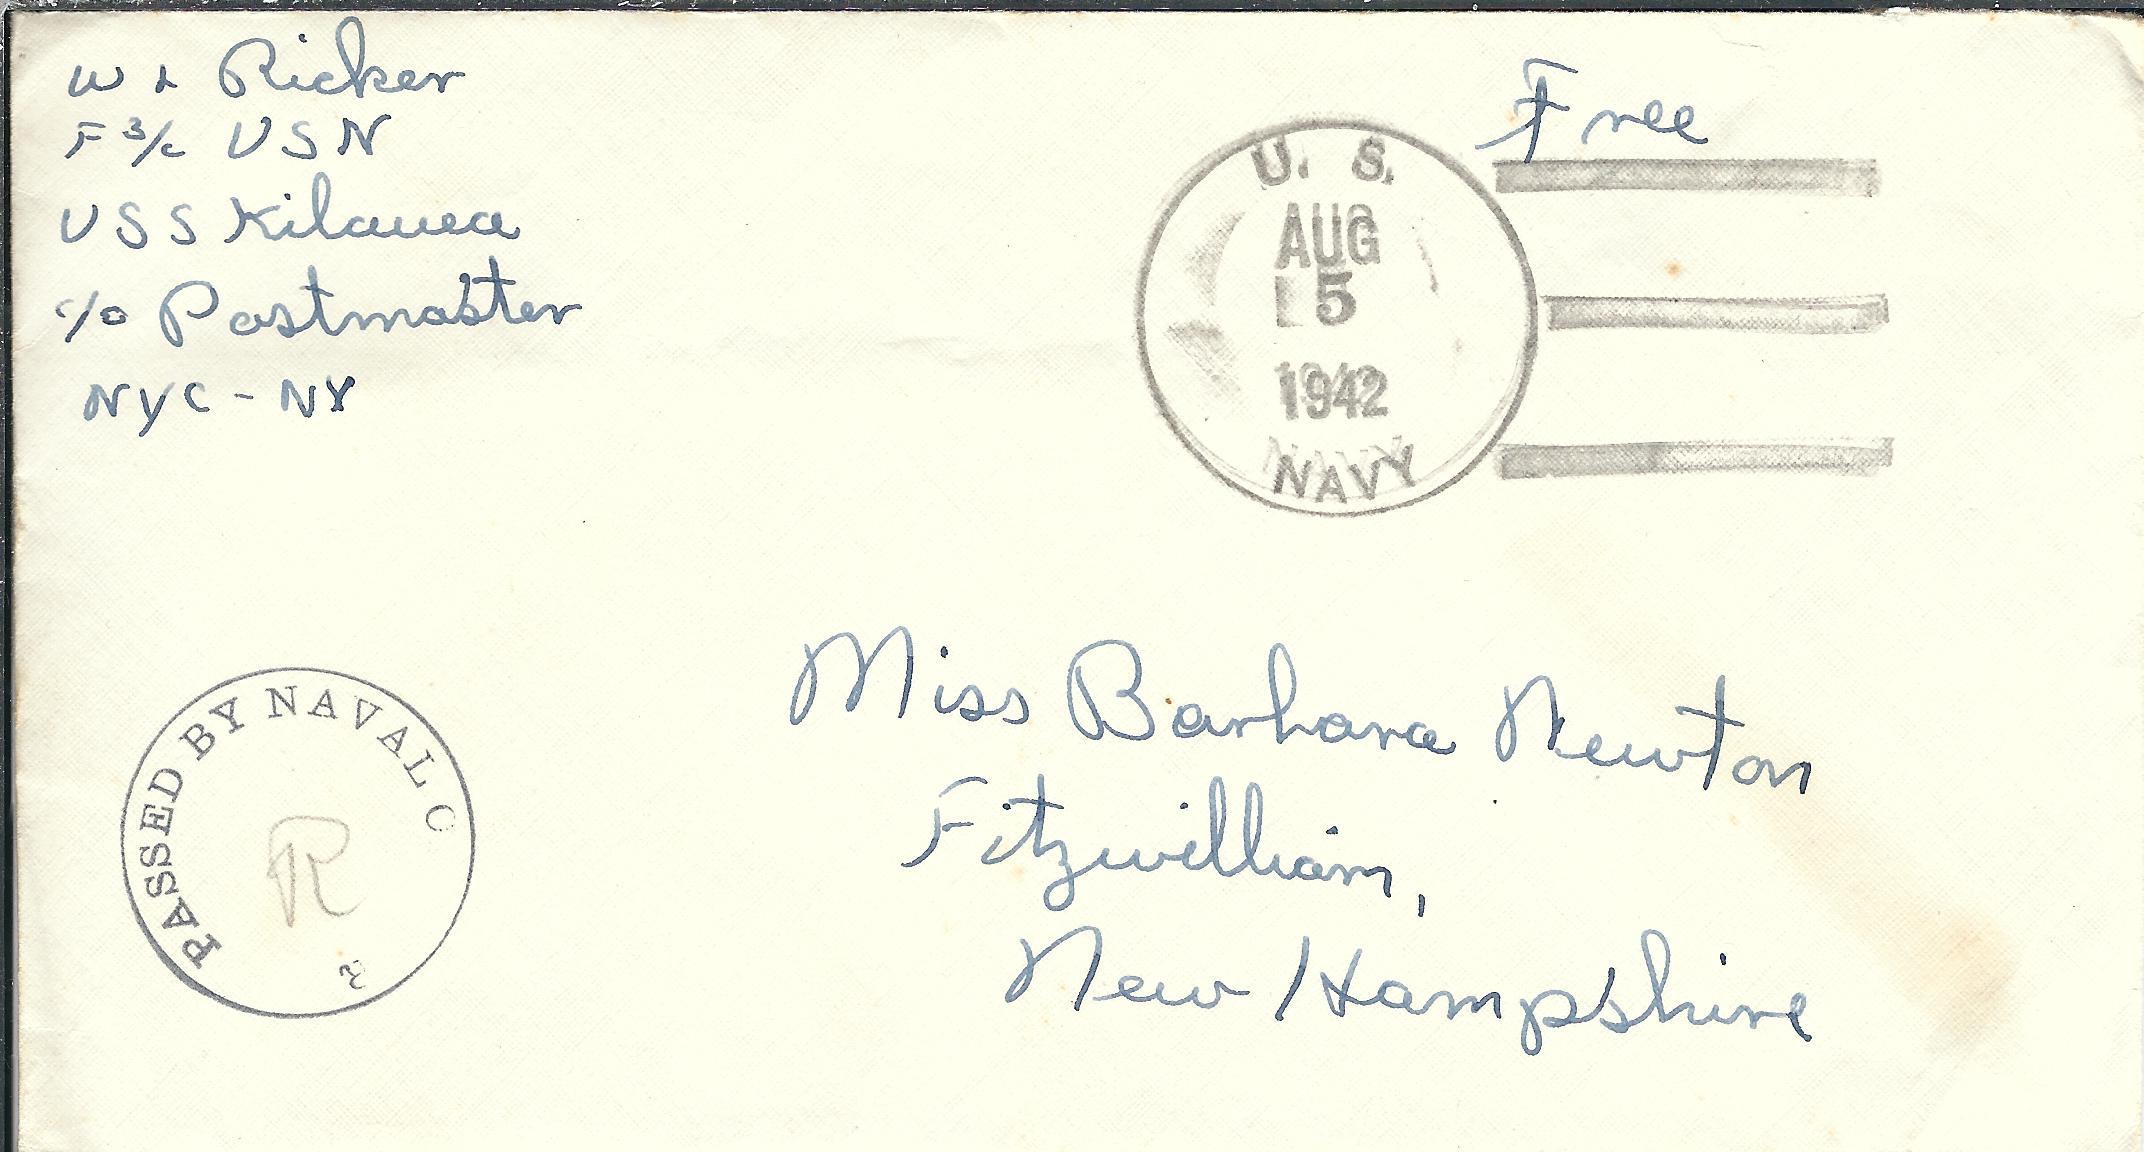 W L Ricker
F 3/c USN
USS Kilauea
c/o Postmaster
NYC - NY
Free
U. S.
AUG
5
1942
NAVY
PASSED BY NAVAL C
R
Miss Barbara Newton
Fitzwilliam,
New Hampshire